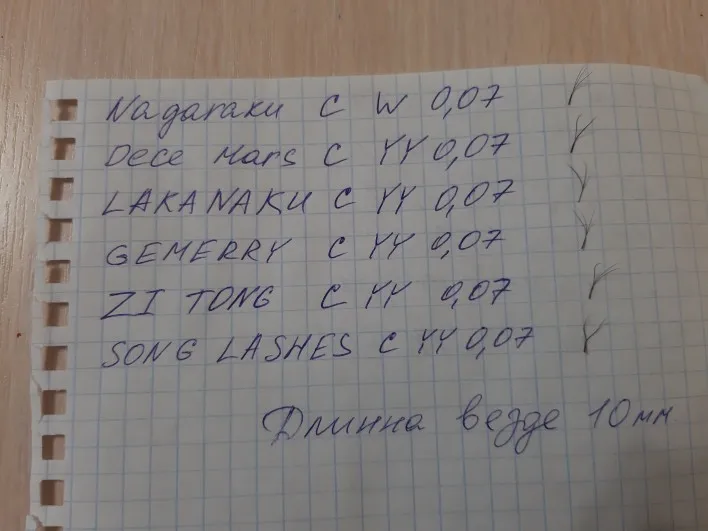 Nagaraku C W 0,07
Dece Mars C YY 0,07
LAKANAKU C YY 0,07
GEMERRY C YY 0,07
ZI TONG C YY 0,07
SONG LASHES C YY 0,07
Длинна везде 10мм